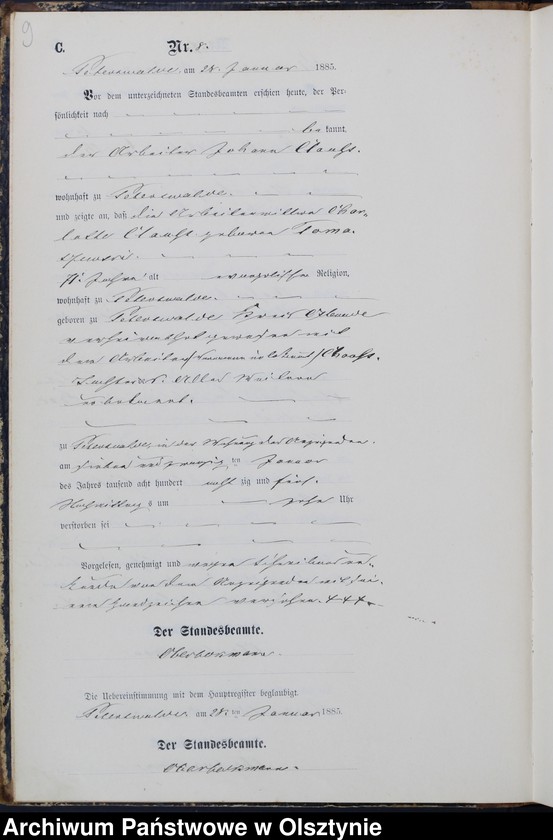 9
C.
Nr. 8.
Peterswalde am 28. Januar 1885.
Vor dem unterzeichneten Standesbeamten erschien heute, der Per-
sönlichkeit nach
bekannt,
der Arbeiter Johann
wohnhaft zu Peterswalde.
und zeigte an, daß die Arbeiterwittwe Char-
lotte geborne Toma-
71 Jahre alt evangelischer Religion,
wohnhaft zu Peterswalde.
geboren zu Peterswalde Kreis Osterode
verheirathet gewesen mit
dem Arbeiter
Tochter des
unbekannt.
zu Peterswalde, in der Wohnung des Anzeigenden.
am sieben und zwanzig ten Januar
des Jahres tausend acht hundert achtzig und fünf.
Nachmittags um zehn Uhr
verstorben sei
Vorgelesen, genehmigt und wegen Schreibensun-
kunde von dem Anzeigenden mit sei-
nem Handzeichen versehen. +++
Der Standesbeamte.
Oberbossmann.
Die Uebereinstimmung mit dem Hauptregister beglaubigt.
Peterswalde am 28. ten Januar 1885.
Der Standesbeamte.
Archiwum Państwowe w Olsztynie